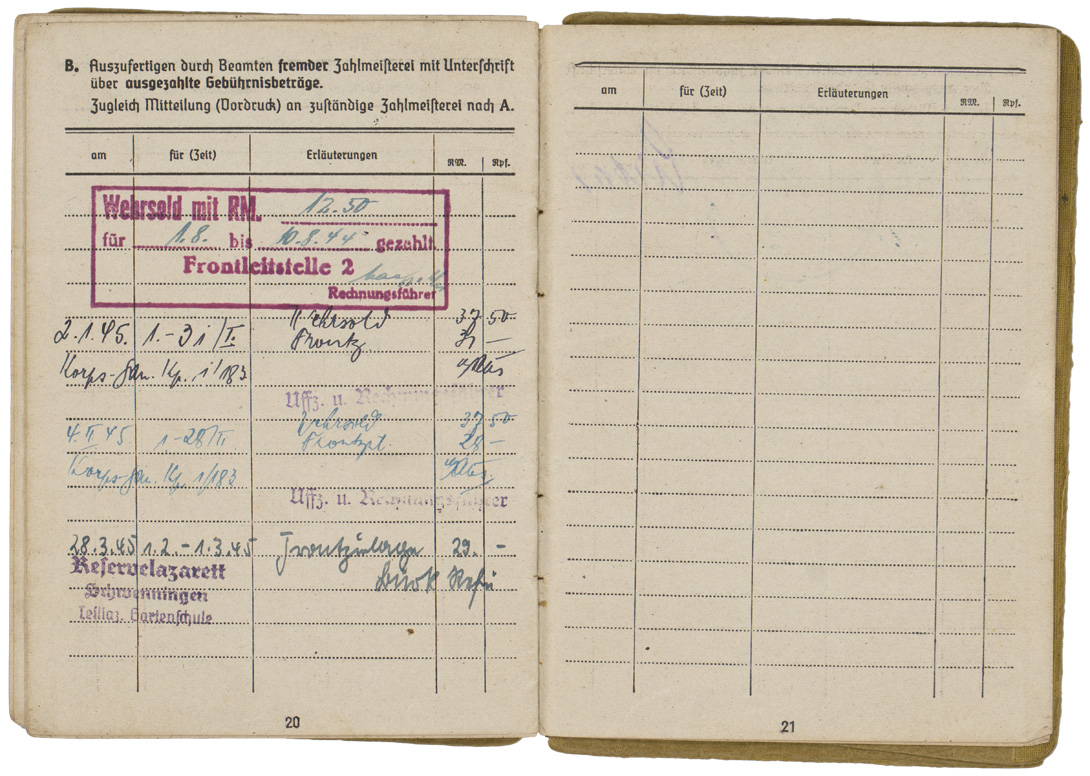 B. Auszufertigen durch Beamten fremder Zahlmeisterei mit Unterschrift
über ausgezahlte Gebührnisbeträge.
Zugleich Mitteilung (Vordruck) an zuständige Zahlmeisterei nach A.
am für (Zeit) Erläuterungen RM. Rpf.
Wehrsold mit RM. 12.50
für 1.8. bis 10.8.44 gezahlt
Frontleitstelle 2
Rechnungsführer
Wehrsold 37 50
2.1.45. 1.-31/I. Frontz 31 —
Korps-San. Kp. 1/183
Uffz. u. Rechnungsführer
Wehrsold 37 50
4.II 45 1-28/II Frontzl. 28 —
Korps-San. Kp. 1/183
Uffz. u. Rechnungsführer
28.3.45 1.2.-1.3.45 Frontzulage 29. -
Reservelazarett
Schwenningen
Teillaz. Gartenschule
20
am für (Zeit) Erläuterungen RM. Rpf.
21